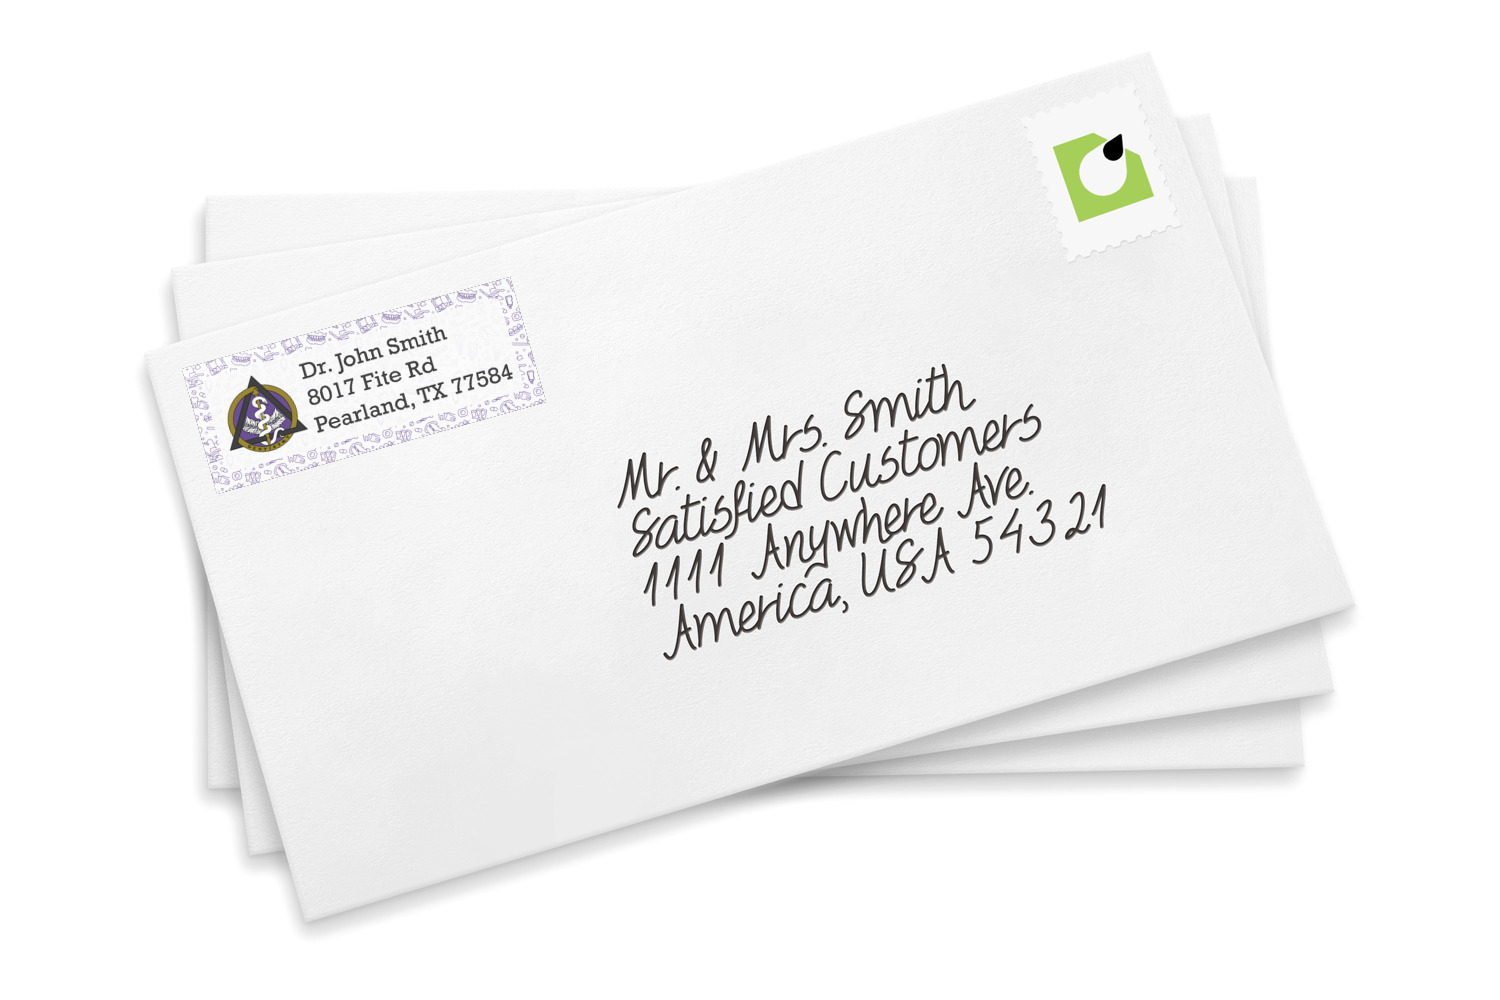 Dr. John Smith
8017 Fite Rd
Pearland, TX 77584
Mr. & Mrs. Smith
Satisfied Customers
1111 Anywhere Ave.
America, USA 54321